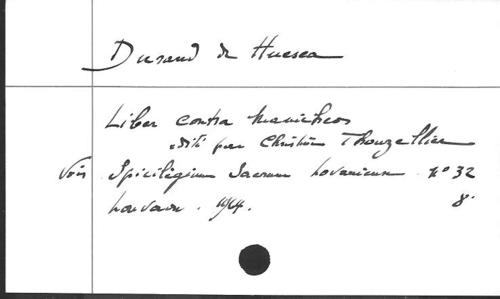 Durand de Huesca
Liber contra manicheos
édité par Christine Thouzellier
Voir Spicilegium Sacrum Lovaniense n° 32
Louvain. 1964.
8°